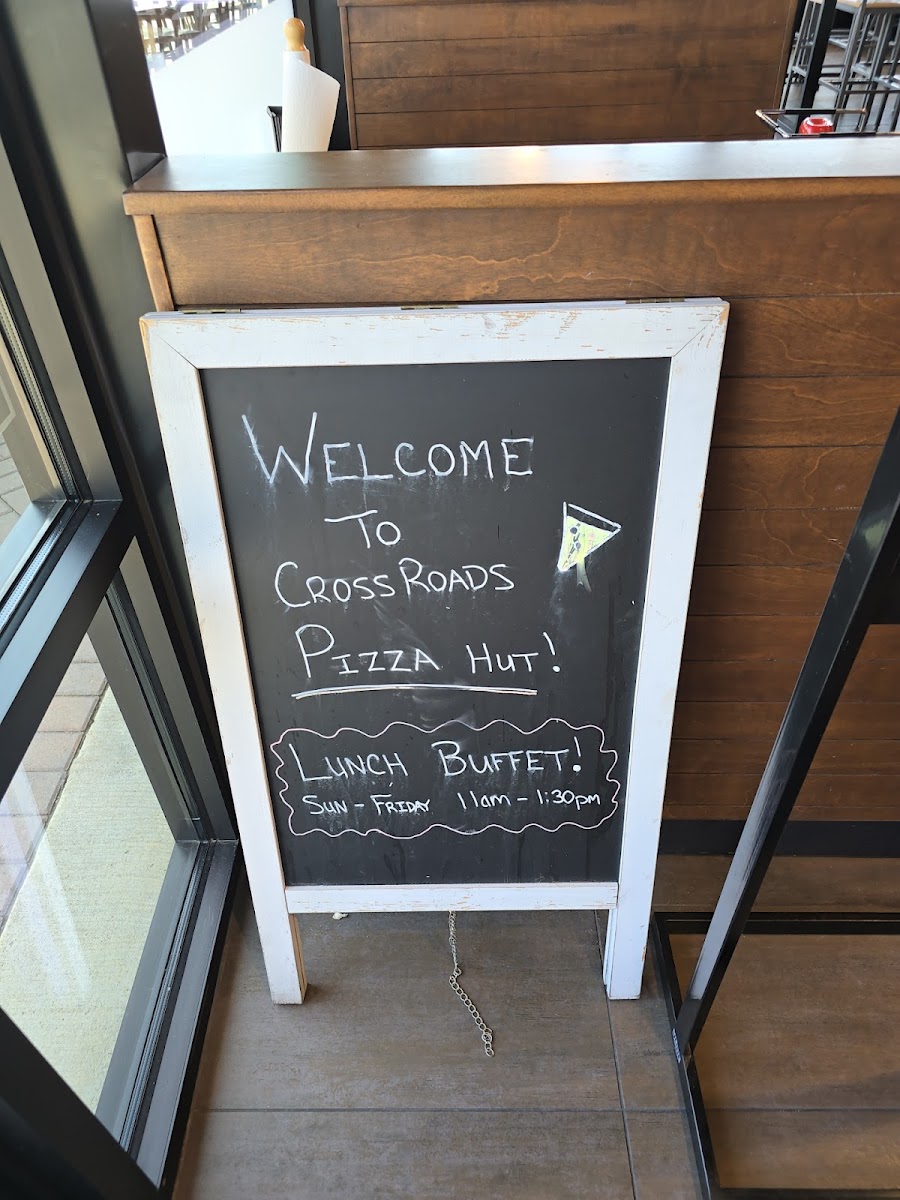 WELCOME
TO
CROSSROADS
PIZZA HUT!
LUNCH BUFFET!
SUN - FRIDAY 11am - 1:30pm